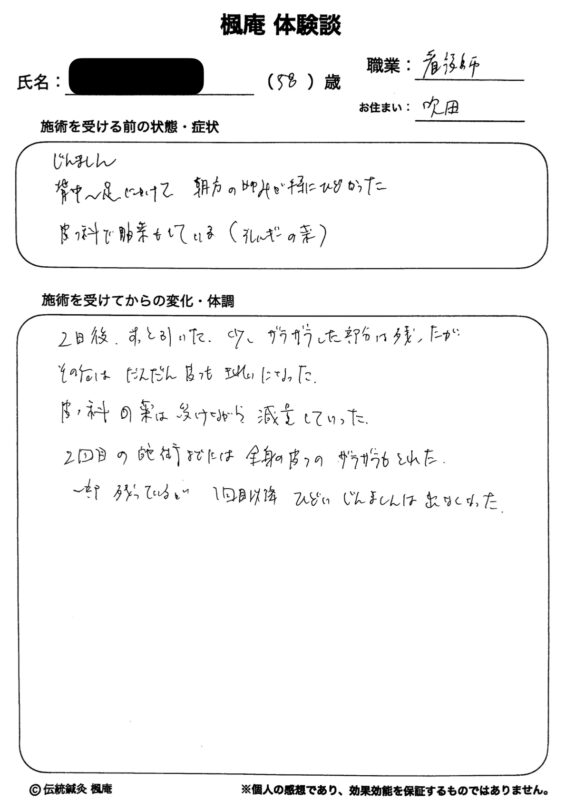 楓庵 体験談
氏名: (58) 歳 職業: 看護師
お住まい: 吹田
施術を受ける前の状態・症状
じんましん
背中〜足にかけて 朝方の 特にひどかった
皮フ科で服薬もしている (アレルギーの薬)
施術を受けてからの変化・体調
2日後、すっと引いた。少しガラガラした部分は残ったが
その後は だんだん皮フも キレイになった。
皮フ科の薬は受けながら 減量していった。
2回目の施術までには 全身の皮フの ガラガラもとれた。
一部 残っているが 1回目以降 ひどい じんましんは 出なくなった。
© 伝統鍼灸 楓庵
※個人の感想であり、効果効能を保証するものではありません。